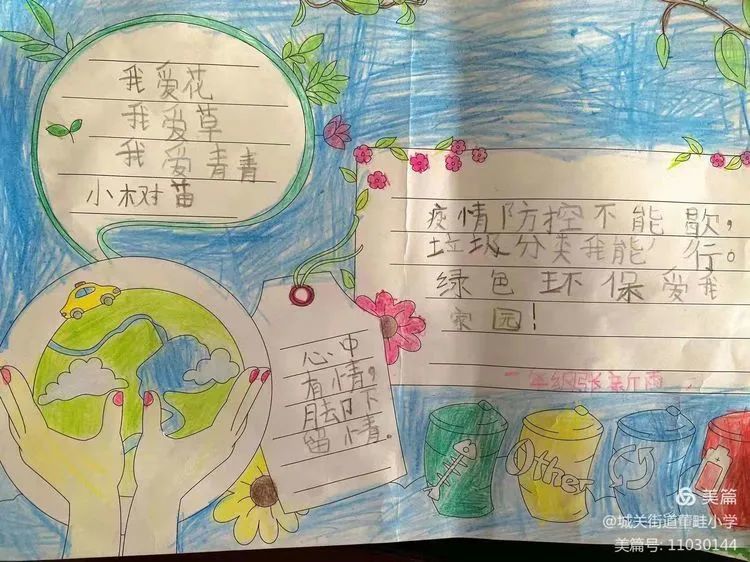 我爱花
我爱草
我爱青青
小树苗
疫情防控不能歇，
垃圾分类我能行。
绿色环保爱我
家园！
一年级张新雨
心中
有情，
脚下
留情。
Other
美篇
@城关街道董畦小学
美篇号: 11030144